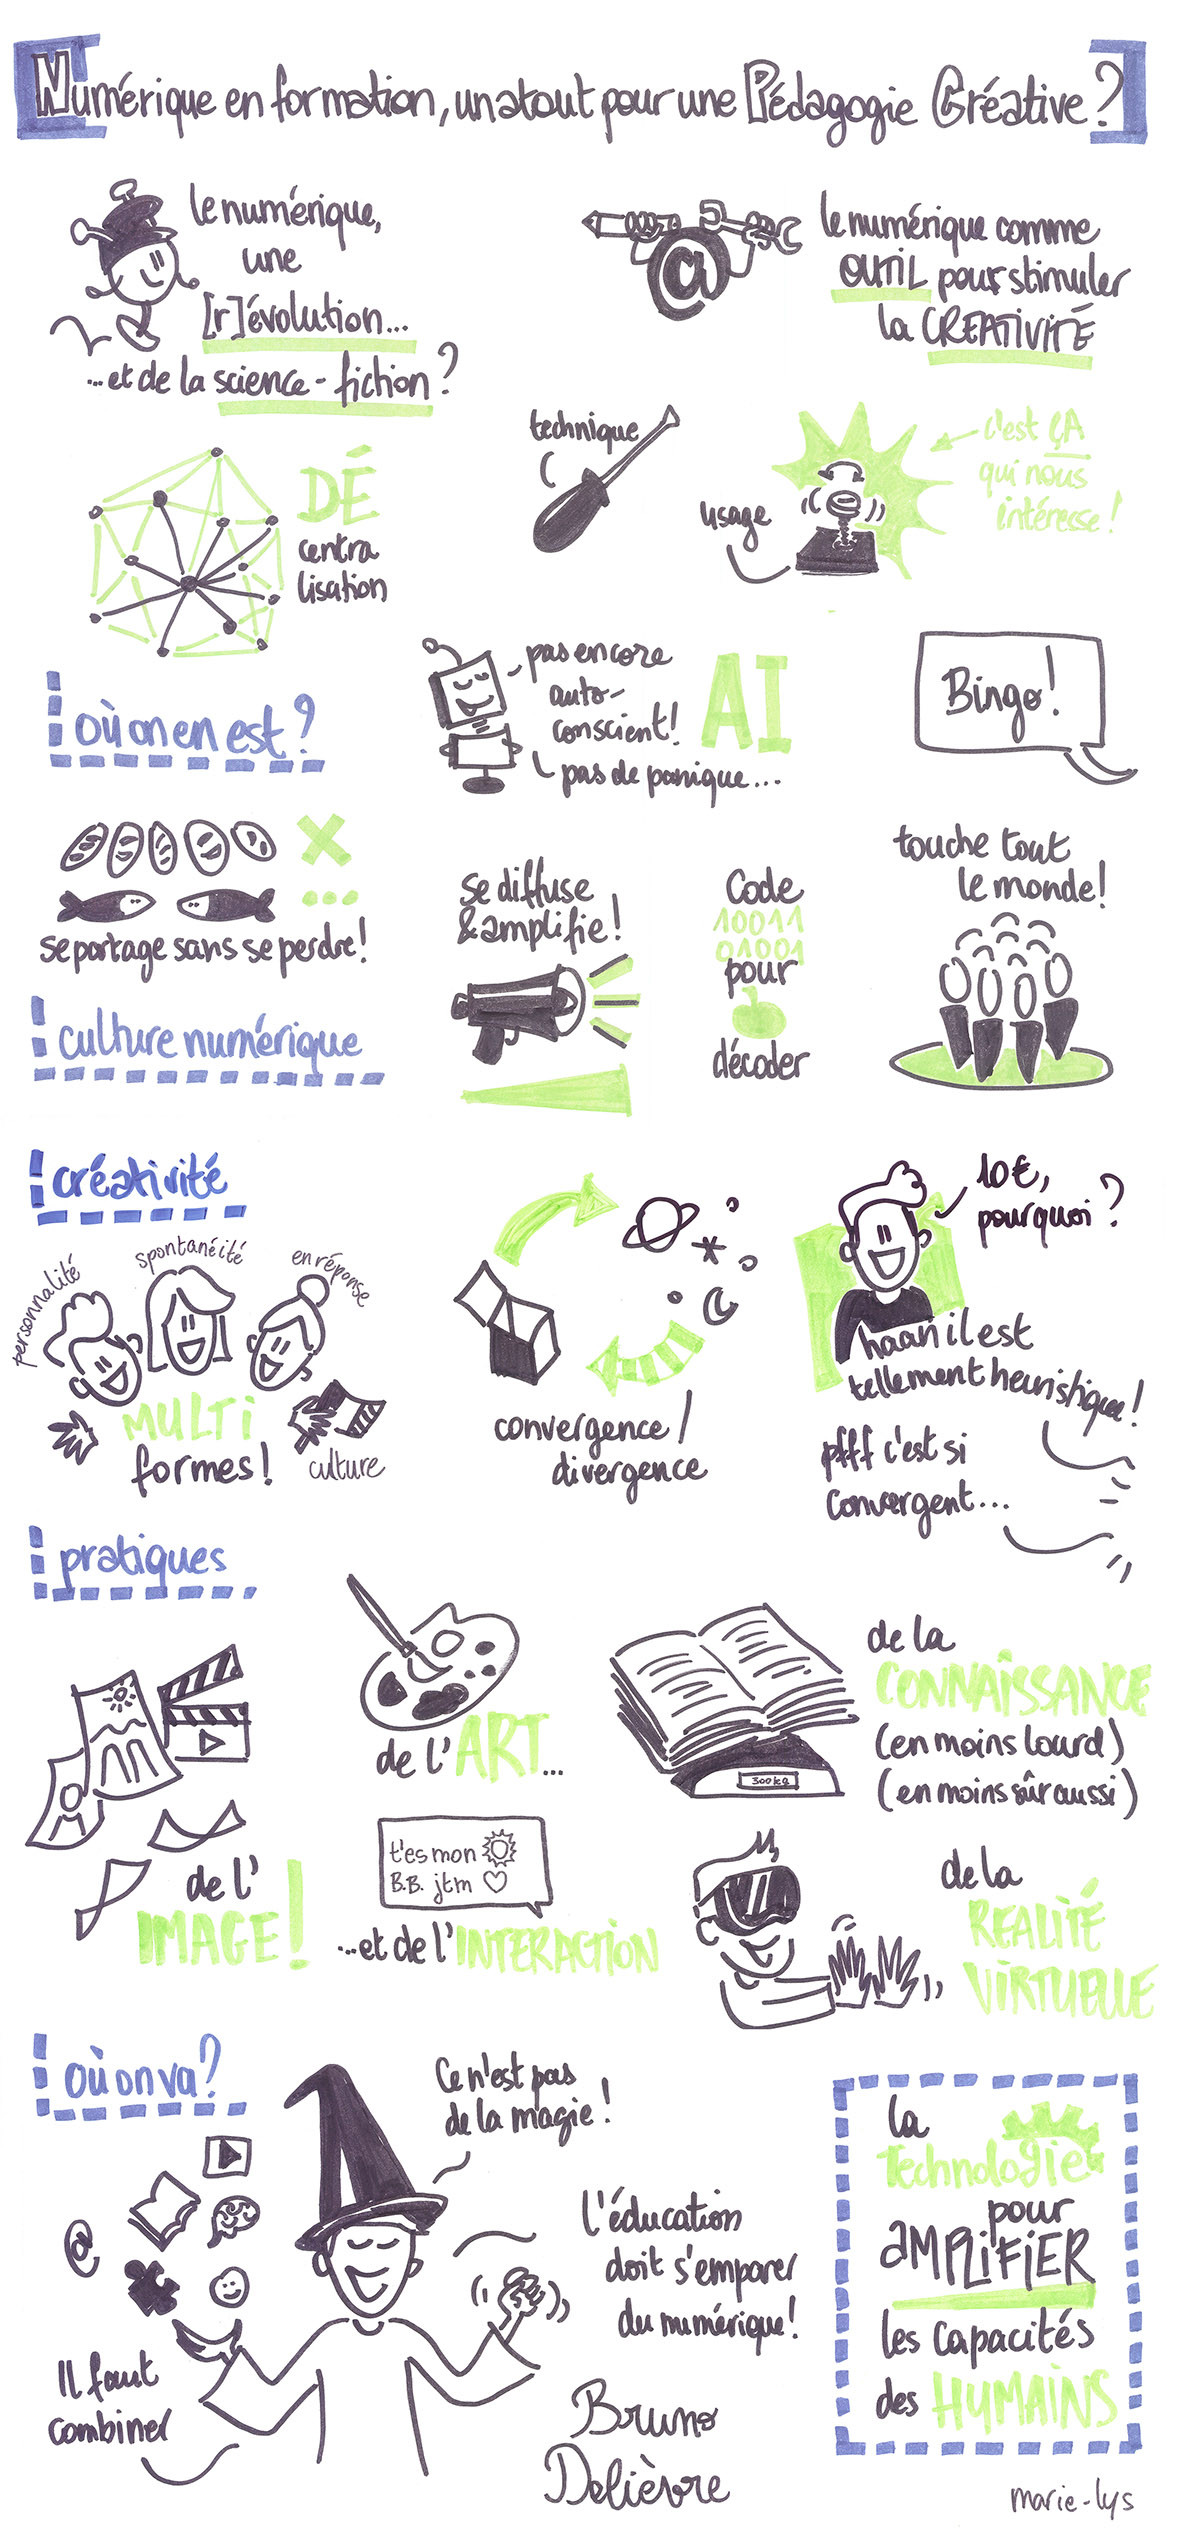 Numérique en formation, un atout pour une Pédagogie Créative ?
le numérique,
une
[r]évolution...
...et de la science-fiction ?
le numérique comme
OUTIL pour stimuler
la CREATIVITÉ
technique
usage
c'est ÇA
qui nous
intéresse !
DÉ
centra
lisation
où on en est ?
pas encore
auto-
conscient !
pas de panique...
AI
Bingo !
se partage sans se perdre !
culture numérique
se diffuse
& amplifie !
Code
10011
01001
pour
décoder
touche tout
le monde !
créativité
personnalité
spontanéité
en réponse
MULTI
formes !
culture
convergence /
divergence
10€,
pourquoi ?
haan il est
tellement heuristique !
pfff c'est si
convergent...
pratiques
de l'
IMAGE !
de l'ART...
t'es mon
B.B. jtm
...et de l'INTERACTION
300kg
de la
CONNAISSANCE
(en moins lourd)
(en moins sûr aussi)
de la
REALITÉ
VIRTUELLE
où on va ?
Ce n'est pas
de la magie !
@
Il faut
combiner
l'éducation
doit s'emparer
du numérique !
Bruno
Delièvre
la
Technologie
pour
AMPLIFIER
les capacités
des HUMAINS
marie-lys